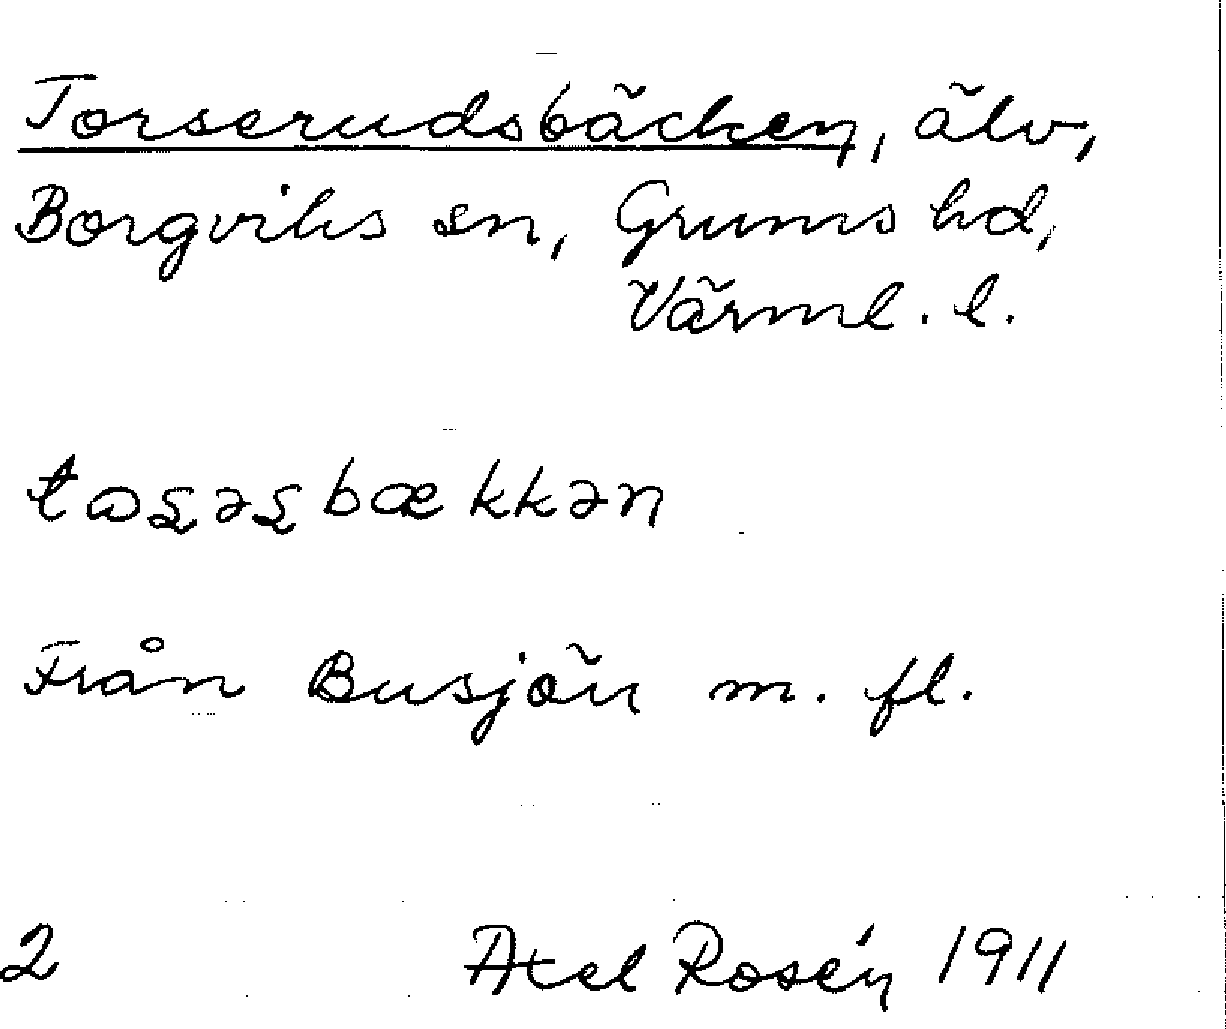 Torserudsbäcken, älv,
Borgviks sn, Grums hd,
Värml. l.
tɷꞩəꞩbækkən
Från Busjön m. fl.
2 Axel Rosén 1911